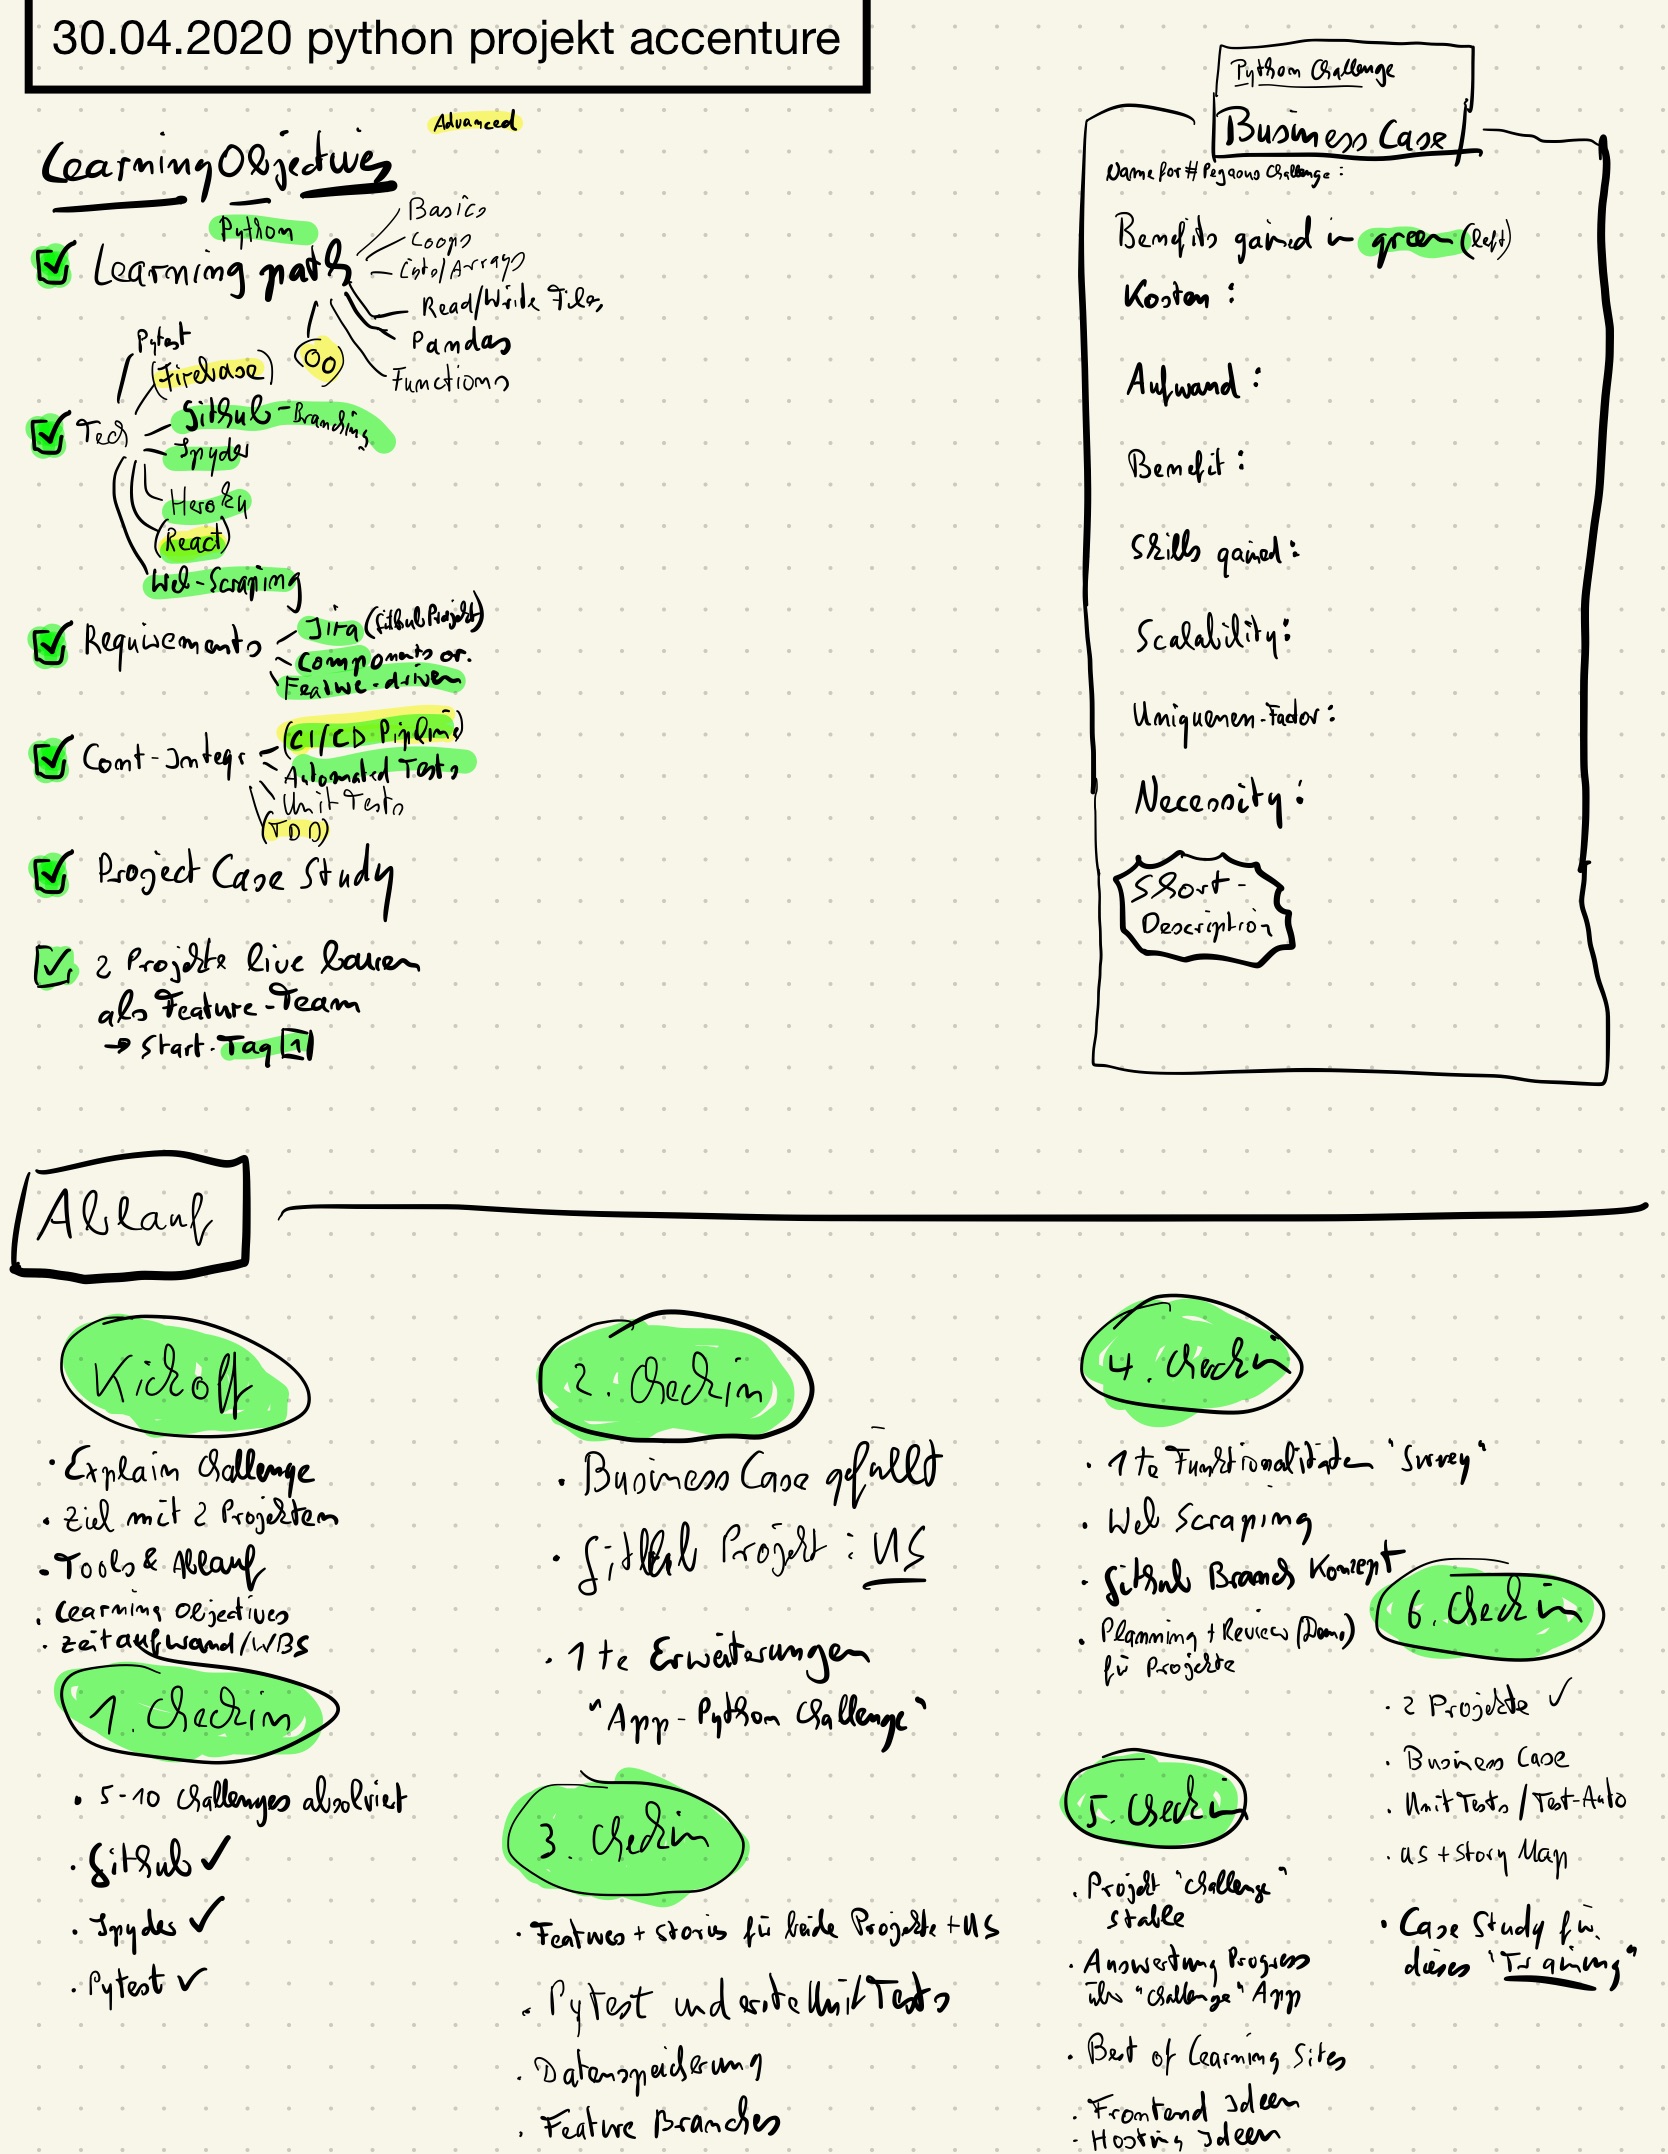 30.04.2020 python projekt accenture
Advanced
Learning Objectives
Python
Learning path
Basics
Loops
Lists/Arrays
Read/Write Files
Pandas
Functions
(OO)
Tech
Pytest
(Firebase)
Github-Branching
Spyder
Heroku
(React)
Web-Scraping
Requirements
Jira (Github Projekt)
Components or.
Feature-driven
Cont-Integr
(CI/CD Pipline)
Automated Tests
Unit Tests
(TDD)
Project Case Study
2 Projekte live bauen
als Feature-Team
→ Start. Tag 1
Python Challenge
Business Case
Name for # Pegasus Challenge:
Benefits gained in green (left)
Kosten:
Aufwand:
Benefit:
Skills gained:
Scalability:
Uniquenen-Factor:
Necessity:
Short-
Description
Ablauf
Kickoff
• Explain Challenge
• Ziel mit 2 Projekten
• Tools & Ablauf
• Learning Objectives
• Zeitaufwand/WBS
1. Checkin
• 5-10 Challenges absolviert
• Github ✓
• Spyder ✓
• Pytest ✓
2. Checkin
• Business Case gefüllt
• Github Projekt: US
• 1te Erweiterungen
"App-Python Challenge"
3. Checkin
• Features + stories für beide Projekte + US
• Pytest und erste Unit Tests
• Datenspeicherung
• Feature Branches
4. Checkin
• 1te Funktionalitäten "Survey"
• Web Scraping
• Github Branch Konzept
• Planning + Review (Demo)
für Projekte
5. Checkin
• Projekt "Challenge"
stable
• Auswertung Progress
über "Challenge" App
• Best of Learning Sites
• Frontend Ideen
• Hosting Ideen
6. Checkin
• 2 Projekte ✓
• Business Case
• Unit Tests / Test-Auto
• US + Story Map
• Case Study für
dieses "Training"